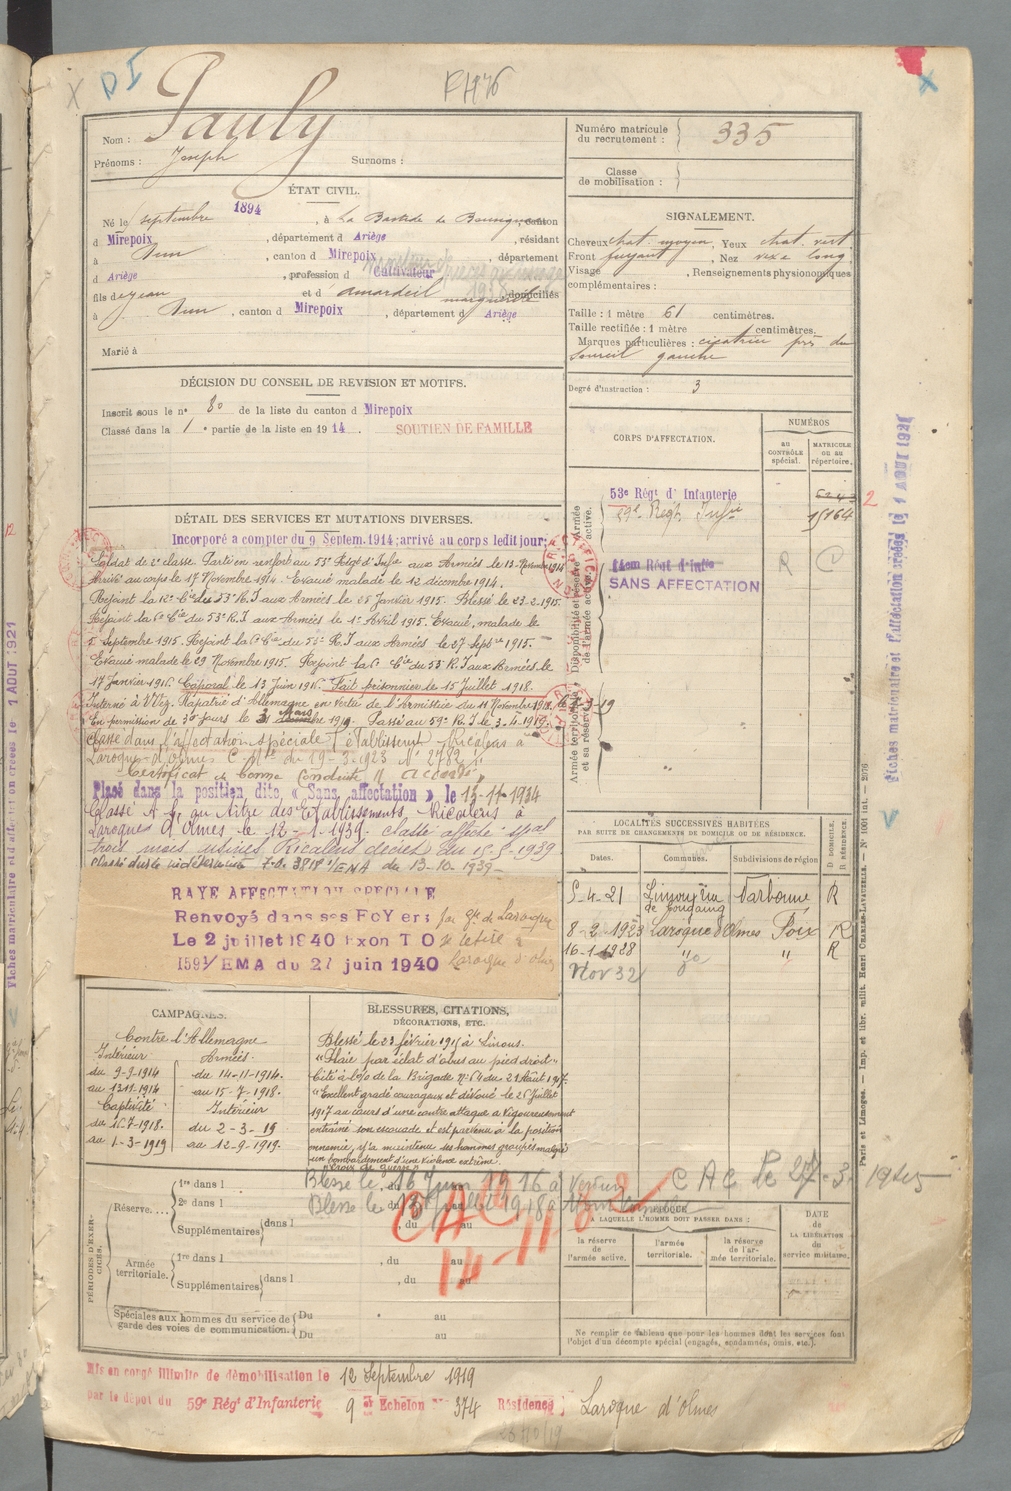 D I
Nom : Pauly
Prénoms : Joseph Surnoms :
Numéro matricule du recrutement : 335
Classe de mobilisation :
ÉTAT CIVIL.
Né le septembre 1894, à La Bastide de canton
d Mirepoix, département d Ariège, résidant
à Dun, canton d Mirepoix, département
d Ariège, profession d Cultivateur
fils de Jean et d Amardeil marguerite domiciliés
à Dun, canton d Mirepoix, département d Ariège
Marié à
SIGNALEMENT.
Cheveux chat. moyen, Yeux chat. vert
Front fuyant, Nez long
Visage , Renseignements physionomiques
complémentaires :
Taille : 1 mètre 61 centimètres.
Taille rectifiée : 1 mètre centimètres.
Marques particulières : cicatrice près du
sourcil gauche
Degré d'instruction : 3
DÉCISION DU CONSEIL DE REVISION ET MOTIFS.
Inscrit sous le n° 80 de la liste du canton d Mirepoix
Classé dans la 1 e partie de la liste en 1914. SOUTIEN DE FAMILLE
CORPS D'AFFECTATION.
NUMÉROS
AU CONTRÔLE spécial.
MATRICULE OU AU répertoire.
Armée active.
53e Régt d'Infanterie
59e Regt Infie 15164
Disponibilité et réserve de l'armée active.
14em Rént d'Infie
SANS AFFECTATION R C
Armée territoriale et sa réserve.
DÉTAIL DES SERVICES ET MUTATIONS DIVERSES.
Incorporé a compter du 9 Septem. 1914; arrivé au corps ledit jour;
Soldat de 2e classe. Parti en renfort au 53e Régt d'Infie aux Armées le 13 Novembre 1914
Arrivé au corps le 17 Novembre 1914. Evacué malade le 12 décembre 1914.
Rejoint la 12e Cie du 53e R.I aux Armées le 25 Janvier 1915. Blessé le 23-2-1915.
Rejoint la 6e Cie du 53e R.I aux Armées le 1er Avril 1915. Evacué, malade le
5 Septembre 1915. Rejoint la 6e Cie du 53e R.I aux Armées le 27 Septre 1915.
Evacué malade le 29 Novembre 1915. Rejoint la 6e Cie du 53e R.I aux Armées le
17 Janvier 1916. Caporal le 13 Juin 1916. Fait prisonnier le 15 Juillet 1918.
Interné à Rapatrié d'Allemagne en vertu de l'Armistice du 11 Novembre 1918
En permission de 30 jours le 3 Mars 1919. Passé au 59e R.I le 3-4-1919.
Classé dans l'affectation spéciale (établissement Ricalens à
Laroque-d'Olmes du 19-3-1923
Certificat de bonne conduite "accordé"
Placé dans la position dite « Sans affectation » le 13-11-1934
Classé au titre des Etablissements Ricalens à
Laroque d'Olmes le 12-1-1939. classé affecté spal
trois mois usines Ricalens
3818 1/EMA du 13-10-1939
RAYE AFFECTATION SPECIALE
Renvoyé dans ses FoYers par Gie de Laroque
Le 2 juillet 1940 Exon T O se retire à
1591/EMA du 27 juin 1940 Laroque d'olmes
LOCALITÉS SUCCESSIVES HABITÉES
PAR SUITE DE CHANGEMENTS DE DOMICILE OU DE RÉSIDENCE.
Dates. Communes. Subdivisions de région D DOMICILE, R RÉSIDENCE.
5-4-21 Narbonne R
8-2-1923 Laroque d'Olmes Foix R
16-1-1928 " " R
Nov 32
CAMPAGNES.
Contre l'Allemagne
Intérieur
du 9-9-1914
au 13-11-1914
Captivité
du 16-7-1918.
au 1-3-1919
Armées.
du 14-11-1914.
au 15-7-1918.
Intérieur
du 2-3-19
au 12-9-1919.
BLESSURES, CITATIONS,
DÉCORATIONS, ETC.
Blessé le 23 février 1915 à
"Plaie par éclat d'obus au pied droit"
Cité à l'o/o de la Brigade N° 64 du 21 Août 1917.
"Excellent gradé courageux et dévoué le 26 Juillet
1917 au cours d'une contre attaque a vigoureusement
entraîné son escouade et est parvenu à la position
ennemie, y a maintenu ses hommes groupés malgré
un bombardement d'une violence extrême.
"Croix de guerre"
Blessé le 16 Juin 1916 à Verdun
Blessé le 15 Juillet 1918 à
C A C le 27-3-1945
CAC
PÉRIODES D'EXERCICES.
Réserve....
1re dans l , du au
2e dans l , du au
Supplémentaires dans l , du au
Armée territoriale.
1re dans l , du au
Supplémentaires dans l , du au
Spéciales aux hommes du service de garde des voies de communication.
Du au
Du au
ÉPOQUE
A LAQUELLE L'HOMME DOIT PASSER DANS :
la réserve de l'armée active.
l'armée territoriale.
la réserve de l'armée territoriale.
DATE de LA LIBÉRATION du service militaire.
Ne remplir ce tableau que pour les hommes dont les services font
l'objet d'un décompte spécial (engagés, condamnés, omis, etc.).
Mis en congé illimité de démobilisation le 12 Septembre 1919
par le dépôt du 59e Régt d'Infanterie 9 e Echelon N° 374 Résidence : Laroque d'Olmes
Fiches matriculaire et d'affectation créées le 1 AOUT 1921
Paris et Limoges. — Imp. et libr. milit. Henri CHARLES-LAVAUZELLE. — N° 1001 int. — 2076
Fiches matriculaire et d'affectation créées le 1 AOUT 1921